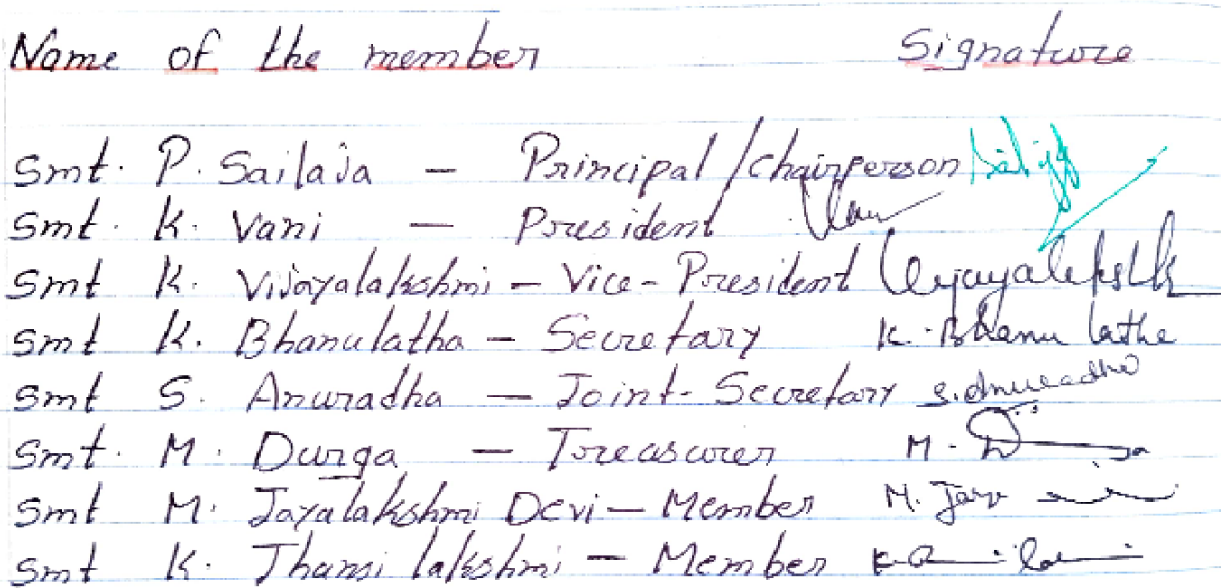 Name of the member Signature
Smt. P. Sailaja - Principal/chairperson
Smt. K. Vani - President
Smt K. Vijayalakshmi - Vice-President Vijayalakshmi
Smt K. Bhanulatha - Secretary K. Bhanu latha
Smt S. Anuradha - Joint-Secretary S. Anuradha
Smt. M. Durga - Treasurer M.
Smt M. Jayalakshmi Devi - Member M. Jaya
Smt K. Jhansi lakshmi - Member